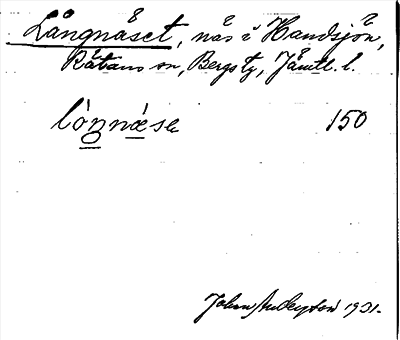 Långnäset, näs i Handsjön,
Rätans sn, Bergs tg, Jämtl. l.
lȯŋnæse 150
John Andersson 1931.